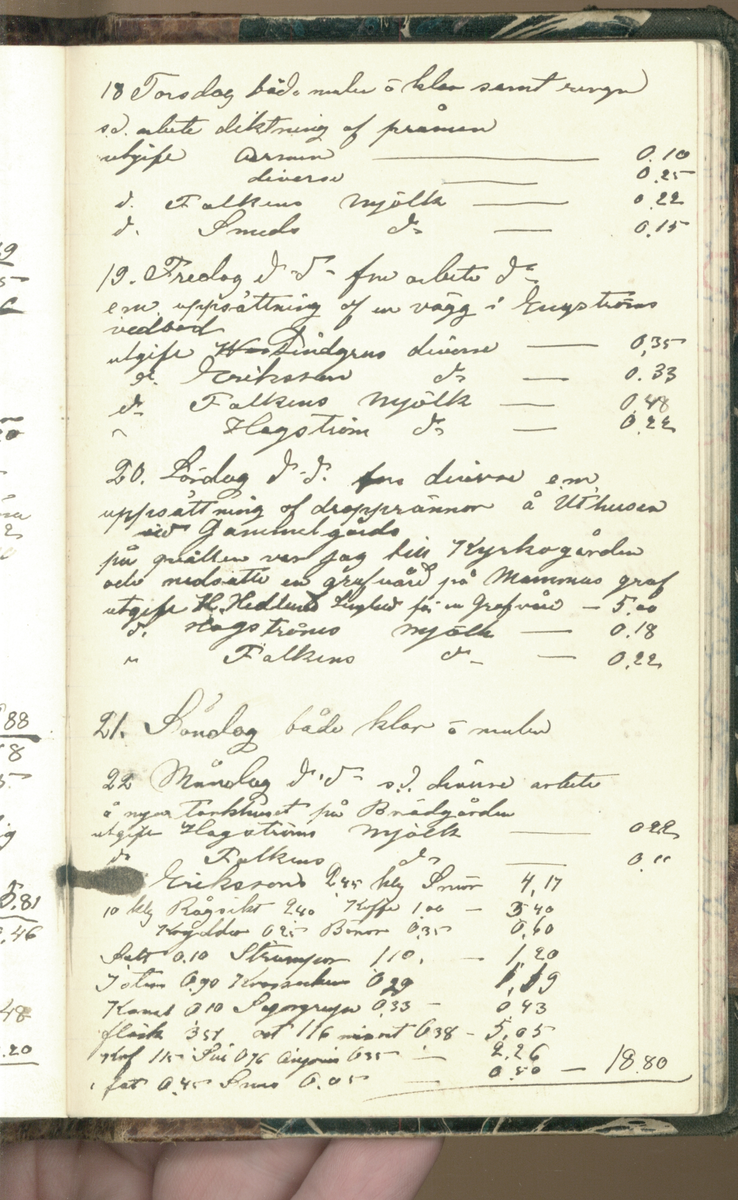 18 Torsdag både mulen o klar samt regn
s.d. arbete diktning af pråmen
utgift 0.10
diverse 0.25
d. Falkens Mjölk 0.22
d. Smeds do 0.15
19. Fredag d d fm arbete do
em uppsättning af en vägg i Engströms
vedbod
utgift Lindgrens diverse 0,35
d. Eriksson do 0.33
do Falkens Mjölk 0,48
" Hagström do 0.22
20. Lördag d. d. fm diverse em
uppsättning af dropprännor å Uthusen
vid Gammelgårds
på qvällen var jag till Kyrkogården
och nedsatte en grafvård på Mammas graf
utgift H. Hedlund för en Grafvård – 5.00
d. Hagströms Mjölk 0.18
" Falkens d 0.22
21. Söndag både klar o mulen
22 Måndag d d s.d. diverse arbete
å nya Torkhuset på Brädgården
utgift Hagströms Mjölk 0 22
do Falkens do
Erikssons 2 45 klg Smör 4,17
10 klg Rågsikt 2 40 Kaffe 1.00 – 3 40
0 25 Bönor 0.35 0,60
Salt 0.10 Strumpor 1 10. – 1,20
0.90 0 29 1,19
Kanel 0 10 Sagogryn 0,33 – 0 43
fläsk 3 51 ost 1 16 0,38 – 5,05
1 15 0 76 0 35 – 2.26
fat 0.45 Snus 0.05 0.50 – 18.80
88
5.81
.46
48
.20